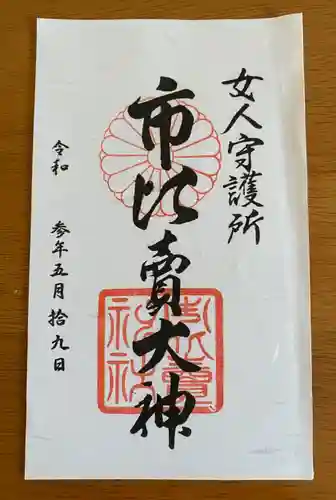 女人守護所
市比賣大神
令和 参年五月拾九日